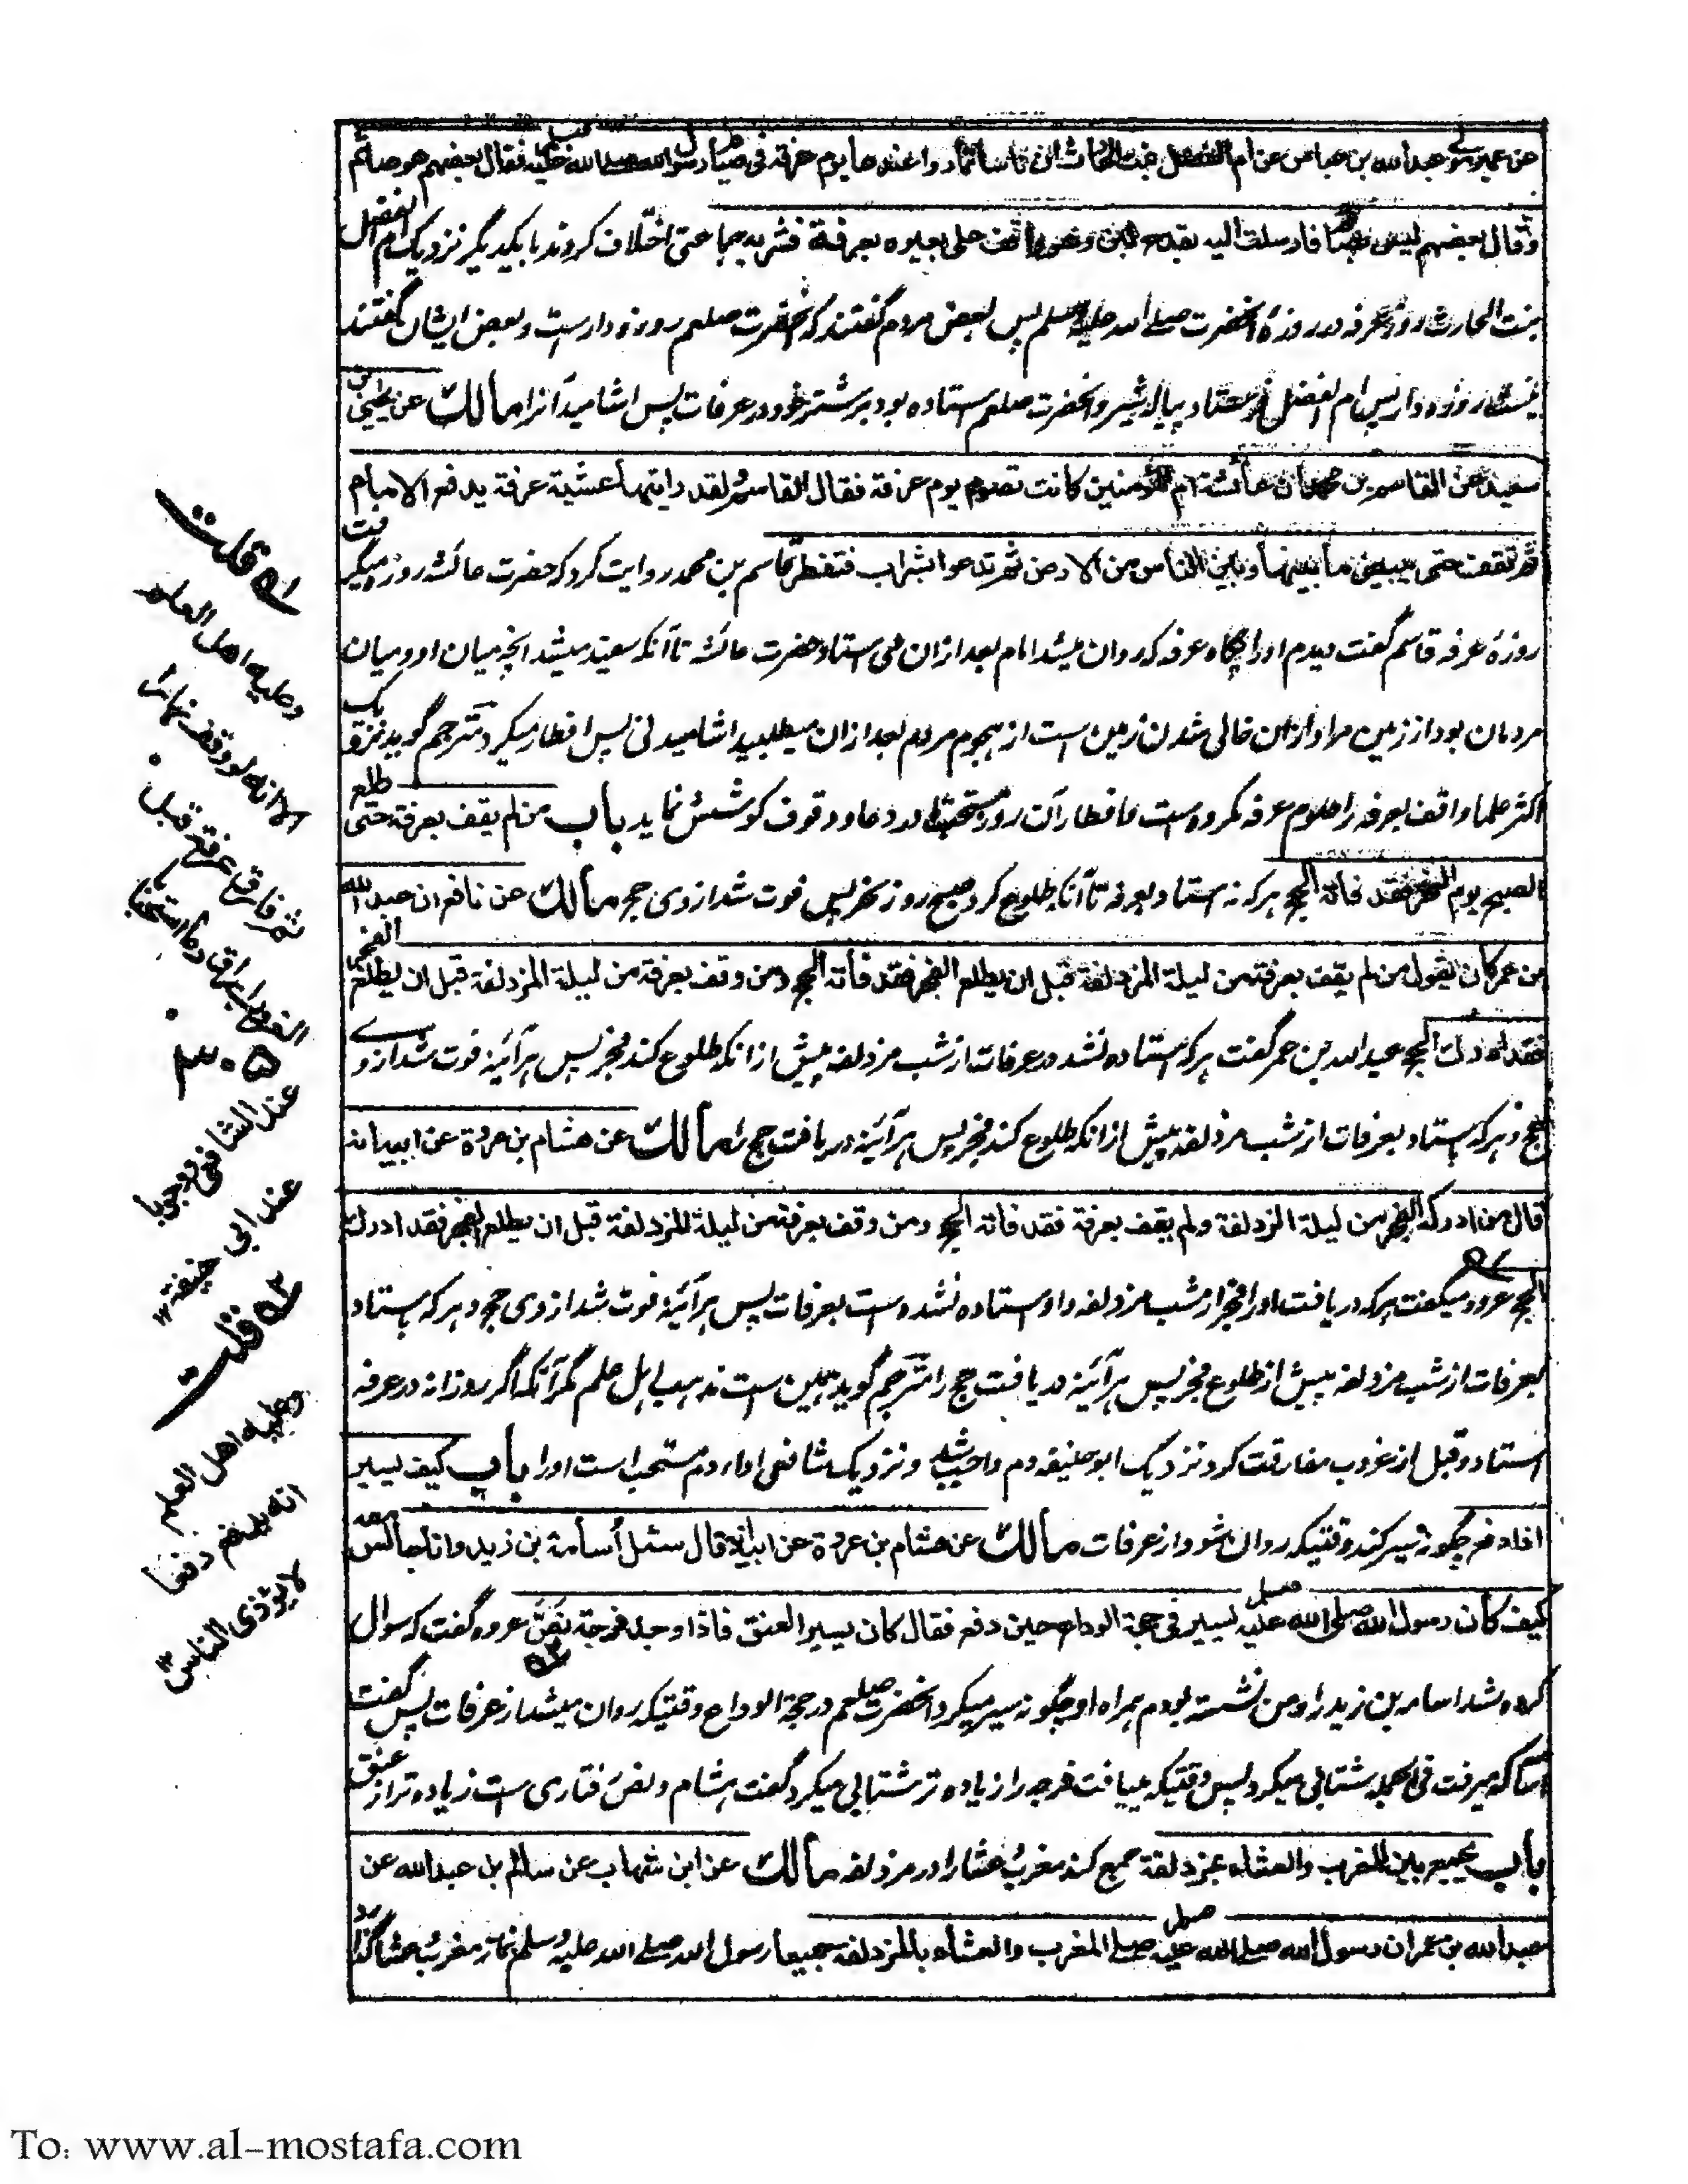 عن عمير مولى عبد الله بن عباس عن ام الفضل بنت الحارث ان ناسا تماروا عندها يوم عرفة في صيام رسول الله صلى الله عليه فقال بعضهم هو صائم
وقال بعضهم ليس بصائم فارسلت اليه بقدح لبن وهو واقف على بعيره بعرفة فشربه جماعتی اختلاف کردند بایکدیگر نزدیک ام الفضل
بنت الحارث روز عرفه در روزهٔ آنحضرت صلی الله علیه وسلم پس بعض مردم گفتند که آنحضرت صلعم روزه دارست و بعض ایشان گفتند
نیست روزه دار پس ام الفضل فرستاد پیالهٔ شیر و آنحضرت صلعم ستاده بود بر شتر خود در عرفات پس اشامید آنرا مالك عن يحيى بن
سعيد عن القاسم بن محمد ان عائشة ام المؤمنين كانت تصوم يوم عرفة فقال القاسم ولقد رايتها عشية عرفة يدفع الامام
ثم تقف حتى يبيض ما بينها وبين الناس من الارض ثم تدعوا بشراب فتفطر قاسم بن محمد روایت کرد که حضرت عائشه روزه میگرفت
روزهٔ عرفه قاسم گفت دیدم اورا پگاه عرفه که روان میشد امام بعد ازان می استاد حضرت عائشه تا آنکه سفید میشد انچه میان او و میان
مردمان بود از زمین مراد ازان خالی شدن زمین است از هجوم مردم بعد ازان میطلبید اشامیدنی پس افطار میکرد مترجم گوید نزدیک
اکثر علما واقف بعرفه را صوم عرفه مکروه ست و افطار آن روز مستحب تا در دعا و وقوف کوشش نماید باب من لم يقف بعرفة حتى طلع
الصبح يوم النحر فقد فاته الحج هر که نه استاد بعرفه تا آنکه طلوع کرد صبح روز نحر پس فوت شد از وی حج مالك عن نافع ان عبد الله
بن عمر كان يقول من لم يقف بعرفة من ليلة المزدلفة قبل ان يطلع الفجر فقد فاته الحج ومن وقف بعرفة من ليلة المزدلفة قبل ان يطلع الفجر
فقد ادرك الحج عبد الله بن عمر گفت هر که استاده نشد در عرفات از شب مزدلفه پیش از انکه طلوع کند فجر پس هر آئینه فوت شد از وے
حج و هر که استاد بعرفات از شب مزدلفه پیش از انکه طلوع کند فجر پس هر آئینه دریافت حج را مالك عن هشام بن عروة عن ابيه انه
قال من ادركه الفجر من ليلة المزدلفة ولم يقف بعرفة فقد فاته الحج ومن وقف بعرفة من ليلة المزدلفة قبل ان يطلع الفجر فقد ادرك
الحج عروه میگفت هر که دریافت اورا فجر از شب مزدلفه و او ستاده نشده ست بعرفات پس هر آئینه فوت شد از وی حج و هر که بستاد
بعرفات از شب مزدلفه پیش از طلوع فجر پس هر آئینه دریافت حج را مترجم گوید همین ست مذهب اهل علم مگر آنکه اگر روزانه در عرفه
استاد و قبل از غروب مفارقت کرد نزدیک ابو حنیفه دم واجب شد و نزدیک شافعی اداء دم مستحب است اورا باب كيف يسير
اذا دفع چگونه سیر کند وقتیکه روان شود از عرفات مالك عن هشام بن عروة عن ابيه انه قال سئل أسامة بن زيد وانا جالس معه
كيف كان رسول الله صلى الله عليه يسير في حجة الوداع حين دفع فقال كان يسير العنق فاذا وجد فرجة نص عروه گفت که سوال
کرده شد اسامه بن زید را و من نشسته بودم همراه او چگونه سیر میکرد آنحضرت صلعم در حجة الوداع وقتیکه روان میشد از عرفات پس گفت
اسامه که میرفت فی الجمله شتابی میکرد پس وقتیکه مییافت فرجه را زیاده تر شتابی میکرد گفت هشام و نص رفتاری ست زیاده تر از عنق
باب يجمع بين المغرب والعشاء بمزدلفة جمع کند مغرب و عشا را در مزدلفه مالك عن ابن شهاب عن سالم بن عبد الله عن
عبد الله بن عمر ان رسول الله صلى الله عليه صلى المغرب والعشاء بالمزدلفة جميعا رسول الله صلی الله علیه وسلم نماز مغرب و عشا گذارد
قلت
وعليه اهل العلم
الا انه لو وقف نهارا
ثم فارق عرفة قبل
الغروب اراق دما استحبابا
عند الشافعي ووجوبا
عند ابي حنيفة ١٢
قلت
وعليه اهل العلم
انه يدفع دفعا
لا يؤذي الناس ١٢
To: www.al-mostafa.com